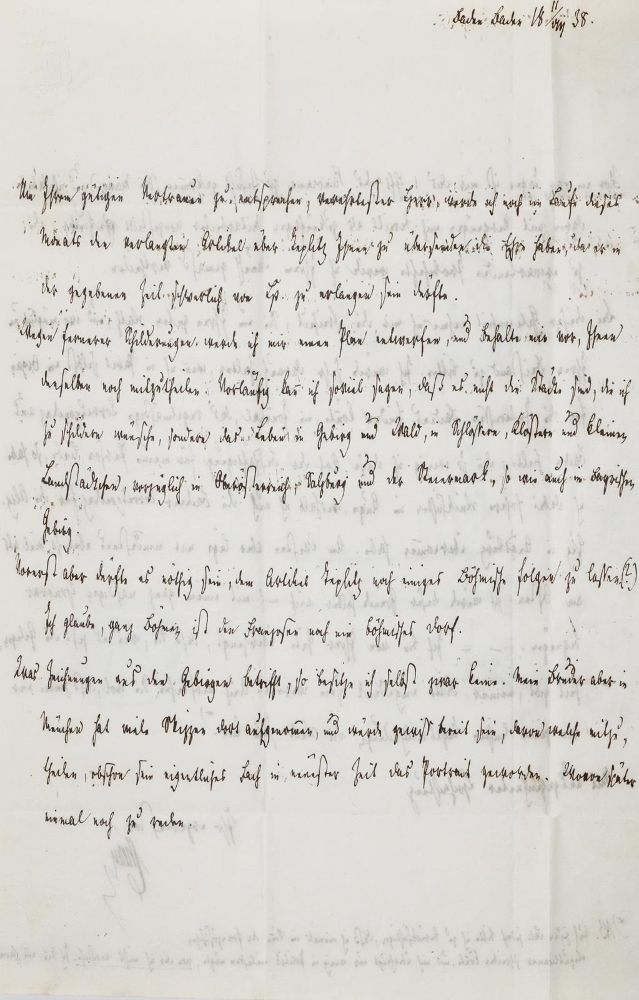 Baden Baden 18 11/VII 38.
Um Ihrem gütigen Vertrauen zu entsprechen, verehrtester Herr, werde ich noch im Laufe dieses
Monats den verlangten Artikel über Teplitz Ihnen zu übersenden die Ehre haben, da er in
der gegebenen Zeit schwerlich von zu erlangen sein dürfte.
Wegen fernerer Schilderungen werde ich mir einen Plan entwerfen, und behalte mir vor, Ihnen
denselben noch mitzutheilen. Vorläufig kan ich soviel sagen, daß es nicht die Städte sind, die ich
zu schildern wünsche, sondern das Leben in Gebirg und Wald, in Schlössern, Klöstern und kleinen
Landstädtchen, vorzüglich in Oberösterreich, Salzburg und der Steiermark, so wie auch im Bayrischen
Gebirg.
Vorerst aber dürfte es nöthig sein, dem Artikel Teplitz noch einiges Böhmische folgen zu lassen (?)
Ich glaube, ganz Böhmen ist den Franzosen noch ein böhmisches Dorf.
Was Zeichnungen aus den Gebirgen betrifft, so besitze ich selbst zwar keine. Mein Bruder aber in
München hat viele Skizzen dort aufgenommen, und würde gewiß bereit sein, davon welche mitzu-
theilen, obschon sein eigentliches Fach in neuster Zeit das Portrait geworden. später
einmal noch zu reden.